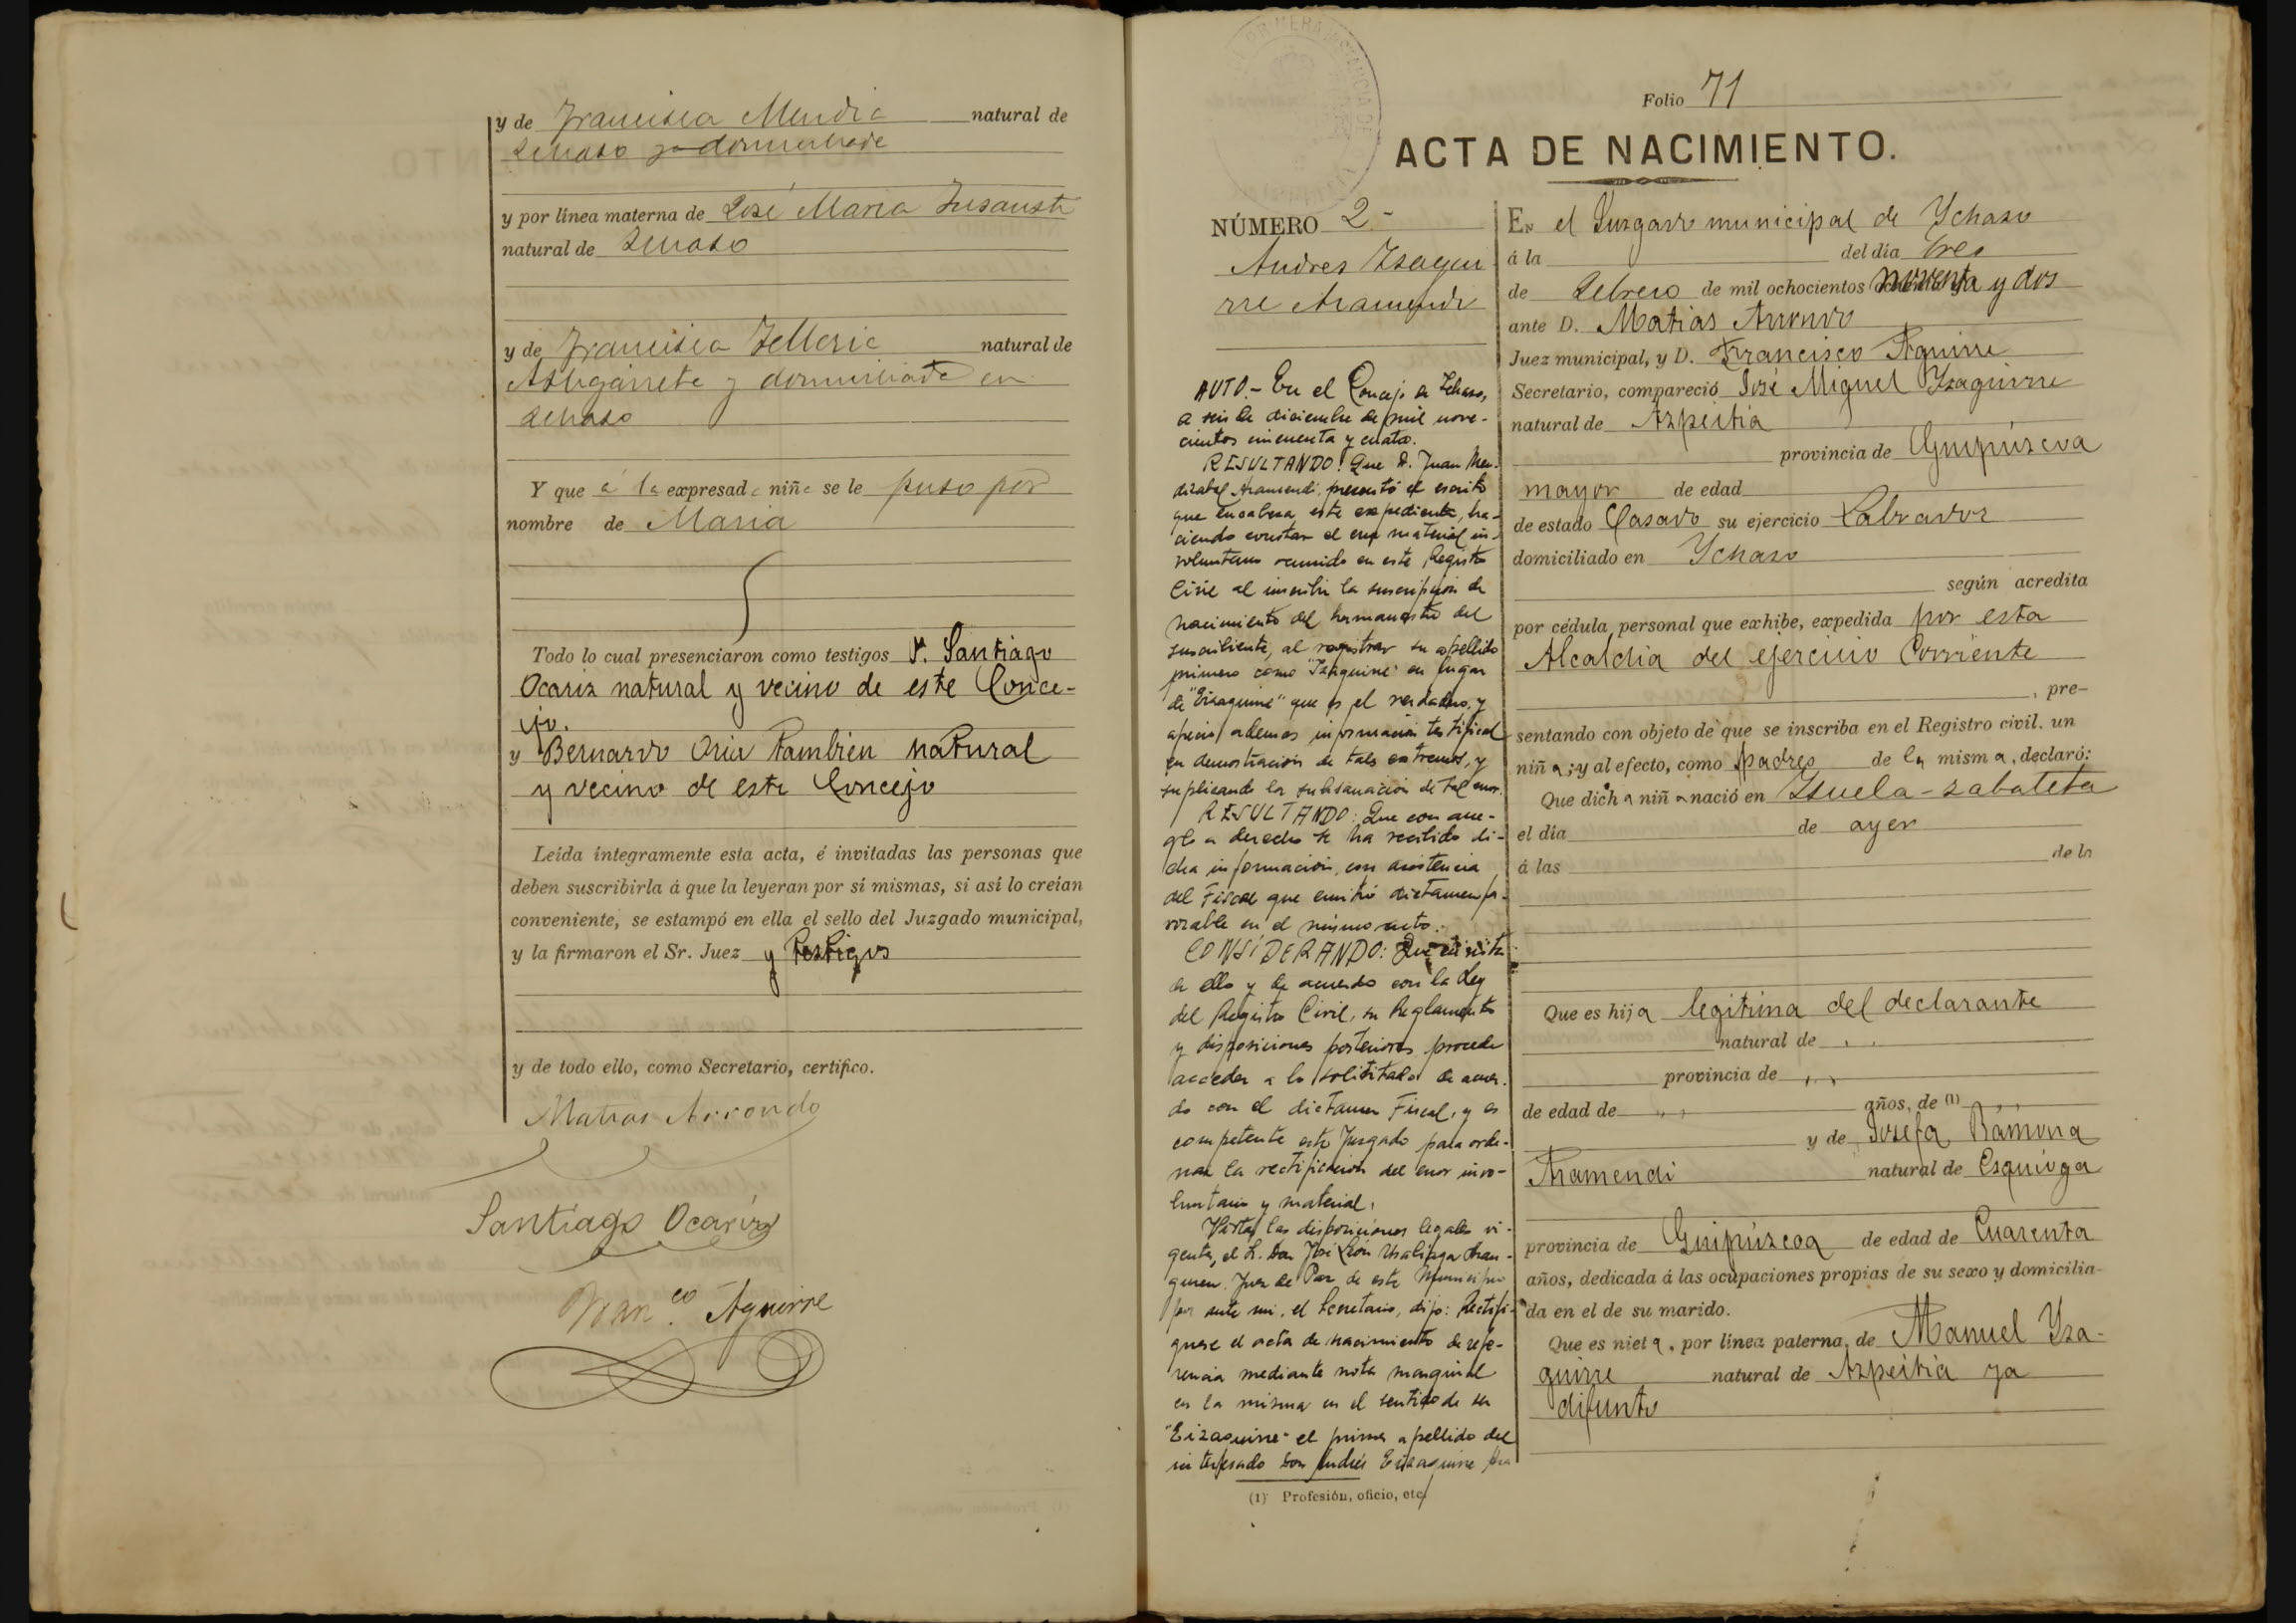 y de Francisca Mendia natural de
Ychaso y domiciliada
y por línea materna de José Maria Insausti
natural de Ychaso
y de Francisca Telleria natural de
Astigarreta y domiciliada en
Ychaso
Y que á la expresada niña se le puso por
nombre de Maria
Todo lo cual presenciaron como testigos D. Santiago
Ocariz natural y vecino de este Conce-
jo.
y Bernardo Oria tambien natural
y vecino de este Concejo
Leída íntegramente esta acta, é invitadas las personas que
deben suscribirla á que la leyeran por sí mismas, si así lo creían
conveniente, se estampó en ella el sello del Juzgado municipal,
y la firmaron el Sr. Juez y testigos
y de todo ello, como Secretario, certifico.
Matias Arrondo
Santiago Ocariz
Fran.co Aguirre
Folio 71
ACTA DE NACIMIENTO.
NÚMERO 2-
Andres Yzagui
rre Aramendi
AUTO.- En el Concejo de Ichaso,
a seis de diciembre de mil nove-
cientos cincuenta y cuatro.
RESULTANDO: Que D. Juan Men-
dizabal Aramendi, presentó el escrito
que encabeza este expediente, ha-
ciendo constar el error material in-
voluntario sufrido en este Registro
Civil al inscribir la inscripción de
nacimiento del hermanastro del
suscribiente, al registrar su apellido
primero como "Izaguirre" en lugar
de "Eizaguirre" que es el verdadero, y
ofreció ademas información testifical
en demostración de tales extremos, y
suplicando la subsanación de tal error.
RESULTANDO: Que con arre-
glo a derecho se ha recibido di-
cha información, con asistencia
del Fiscal que emitió dictamen fa-
vorable en el mismo auto.
CONSIDERANDO: Que en vista
de ello y de acuerdo con la Ley
del Registro Civil, su Reglamento
y disposiciones posteriores procede
acceder a lo solicitado de acuer-
do con el dictamen Fiscal, y es
competente este Juzgado para orde-
nar la rectificación del error invo-
luntario y material,
Vistas las disposiciones legales vi-
gentes, el S. Don José León Aran-
guren Juez de Paz de este Municipio
por ante mi, el Secretario, dijo: Rectifi-
quese el acta de nacimiento de refe-
rencia mediante nota marginal
en la misma en el sentido de ser
"Eizaguirre" el primer apellido del
interesado Don Andrés Eizaguirre Ara
(1) Profesión, oficio, etc.
EN el Juzgado municipal de Ychaso
á la del día tres
de Febrero de mil ochocientos noventa y dos
ante D. Matias Arrondo
Juez municipal, y D. Francisco Aguirre
Secretario, compareció José Miguel Yzaguirre
natural de Azpeitia
provincia de Guipúzcoa
mayor de edad
de estado Casado su ejercicio Labrador
domiciliado en Ychaso
según acredita
por cédula personal que exhibe, expedida por esta
Alcaldia del ejercicio Corriente
, pre-
sentando con objeto de que se inscriba en el Registro civil. un
niña; y al efecto, como padres de la misma, declaró:
Que dicha niña nació en Zuela-zabaleta
el día de ayer
á las de la
Que es hija legitima del declarante
natural de
provincia de
de edad de años, de (1)
y de Josefa Ramona
Aramendi natural de Esquioga
provincia de Guipúzcoa de edad de Cuarenta
años, dedicada á las ocupaciones propias de su sexo y domicilia-
da en el de su marido.
Que es nieta, por línea paterna, de Manuel Yza-
guirre natural de Azpeitia ya
difunto